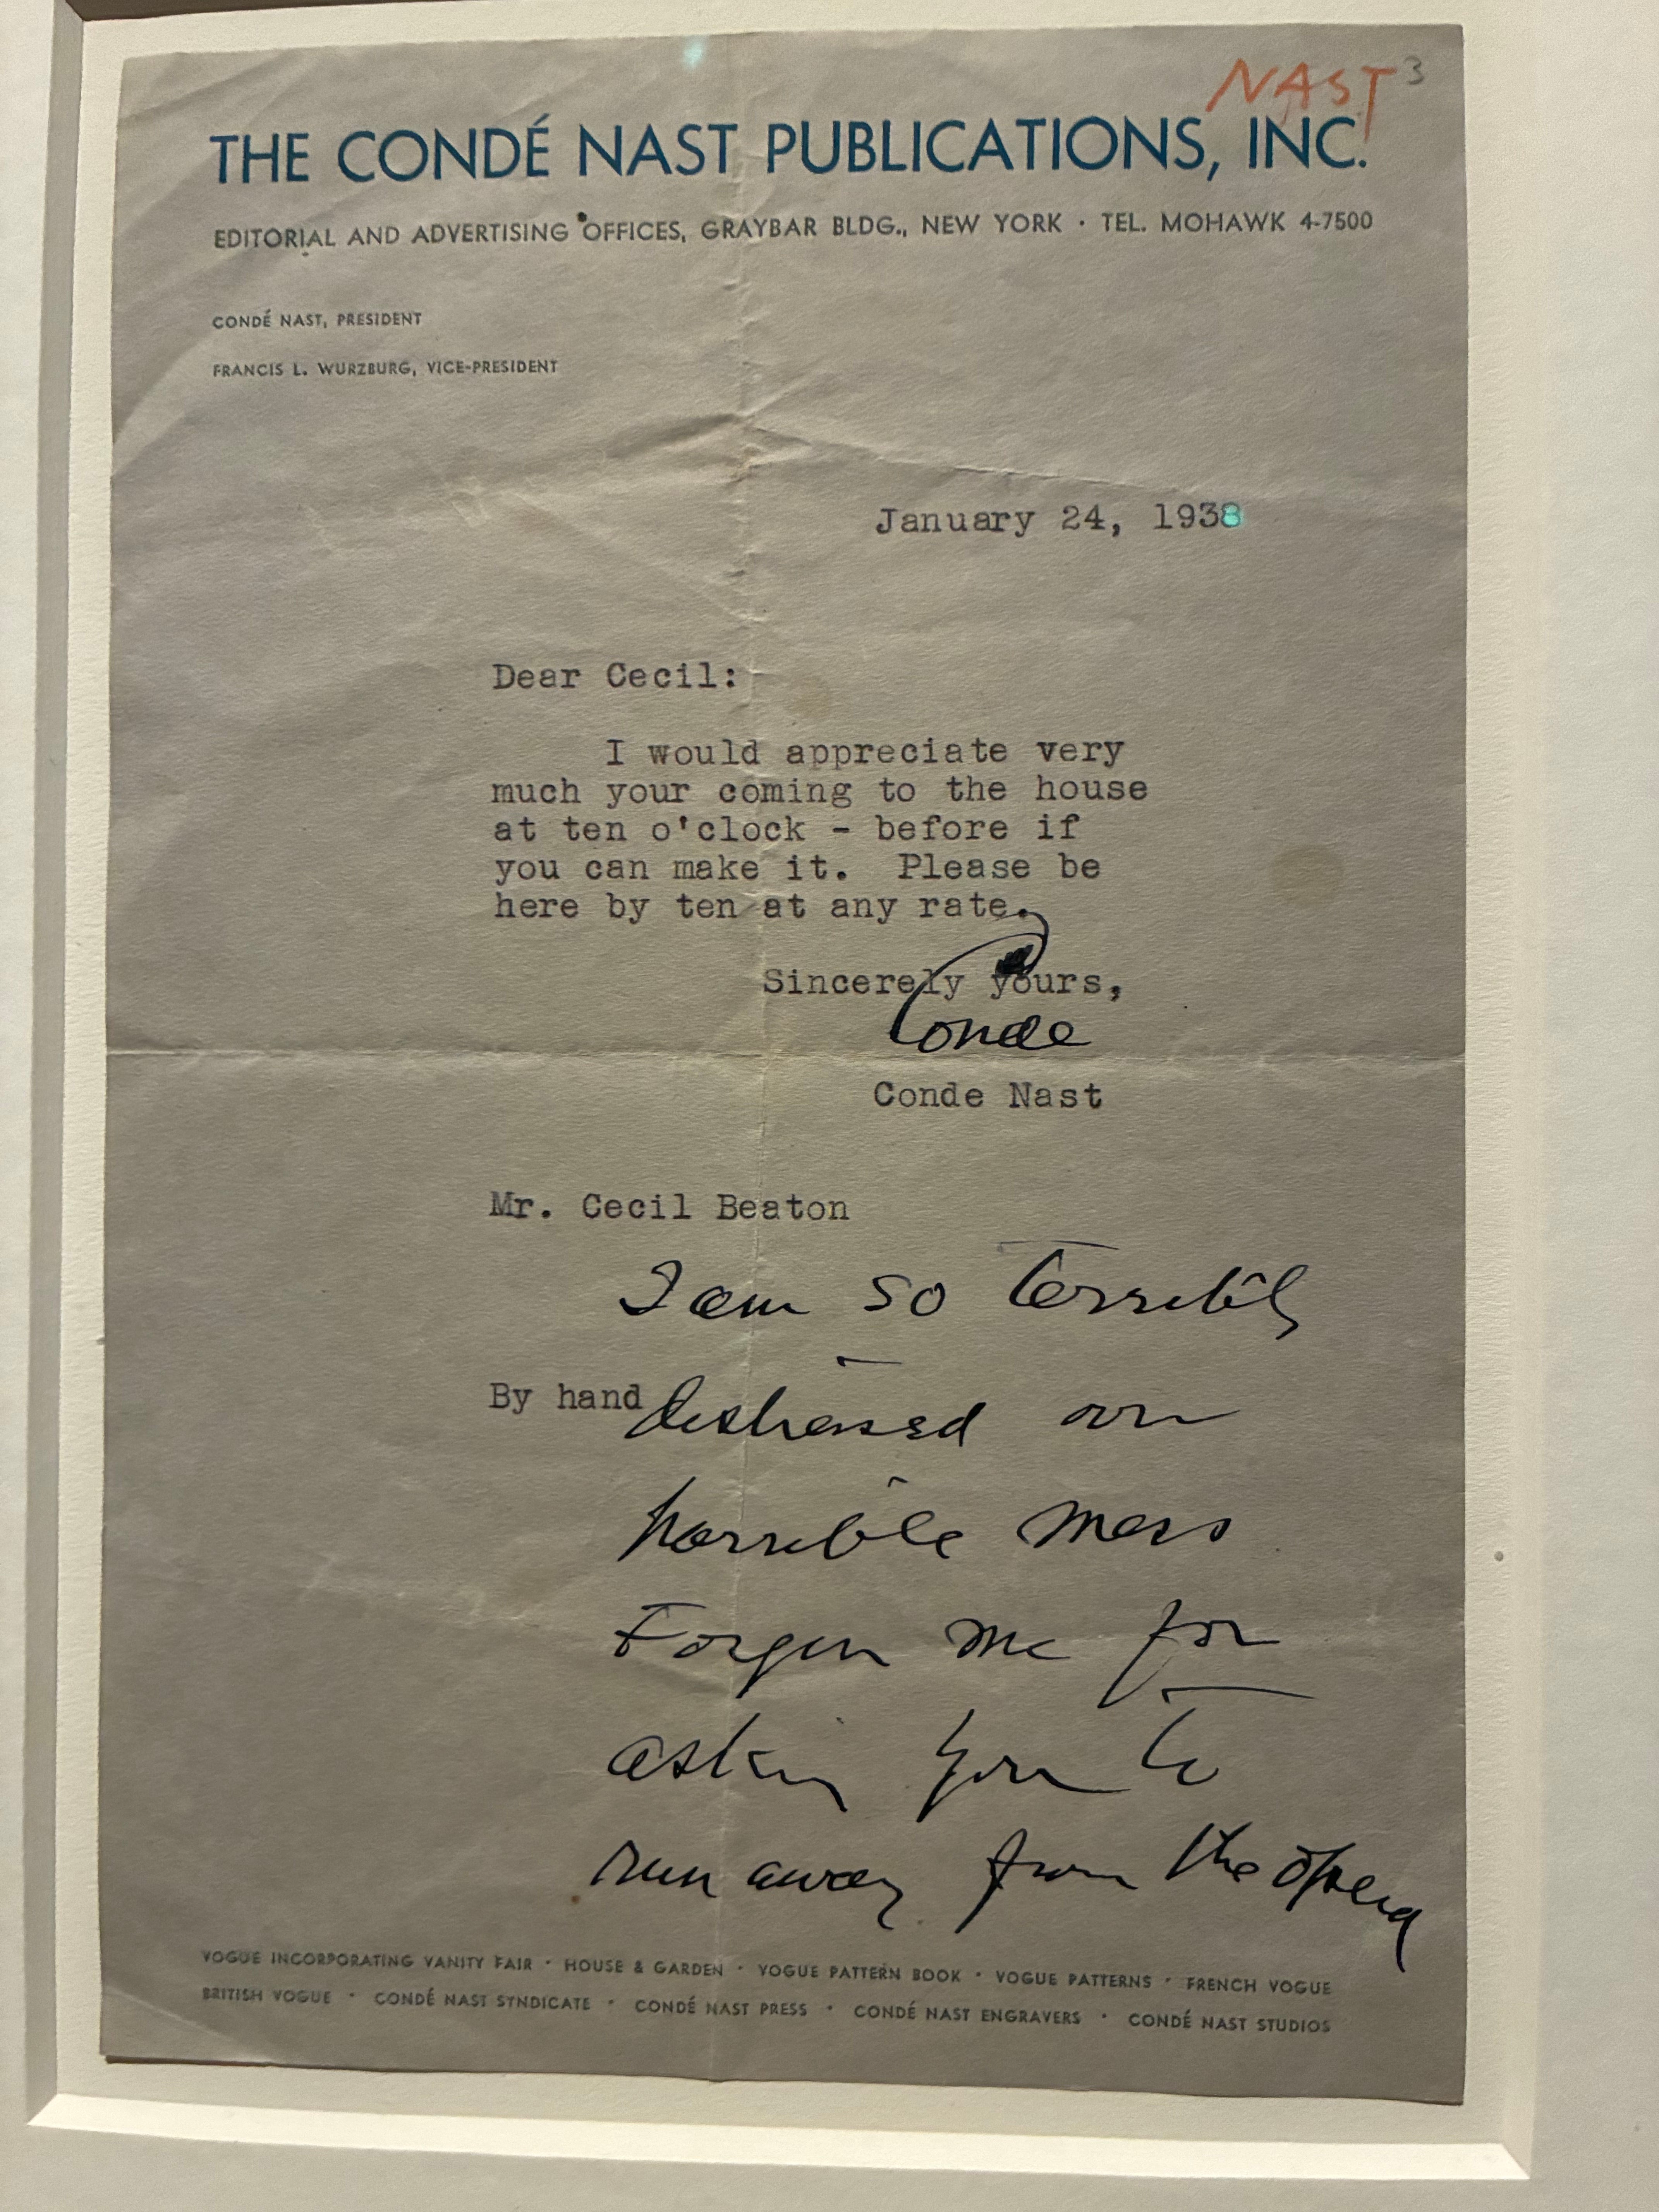 NAST 3
THE CONDÉ NAST PUBLICATIONS, INC.
EDITORIAL AND ADVERTISING OFFICES, GRAYBAR BLDG., NEW YORK · TEL. MOHAWK 4-7500
CONDÉ NAST, PRESIDENT
FRANCIS L. WURZBURG, VICE-PRESIDENT
January 24, 1938
Dear Cecil:
I would appreciate very
much your coming to the house
at ten o'clock - before if
you can make it. Please be
here by ten at any rate.
Sincerely yours,
Conde
Conde Nast
Mr. Cecil Beaton
I am so terribly
By hand
distressed over
horrible mess
Forgive me for
asking you to
run away from the opera
VOGUE INCORPORATING VANITY FAIR · HOUSE & GARDEN · VOGUE PATTERN BOOK · VOGUE PATTERNS · FRENCH VOGUE
BRITISH VOGUE · CONDÉ NAST SYNDICATE · CONDÉ NAST PRESS · CONDÉ NAST ENGRAVERS · CONDÉ NAST STUDIOS